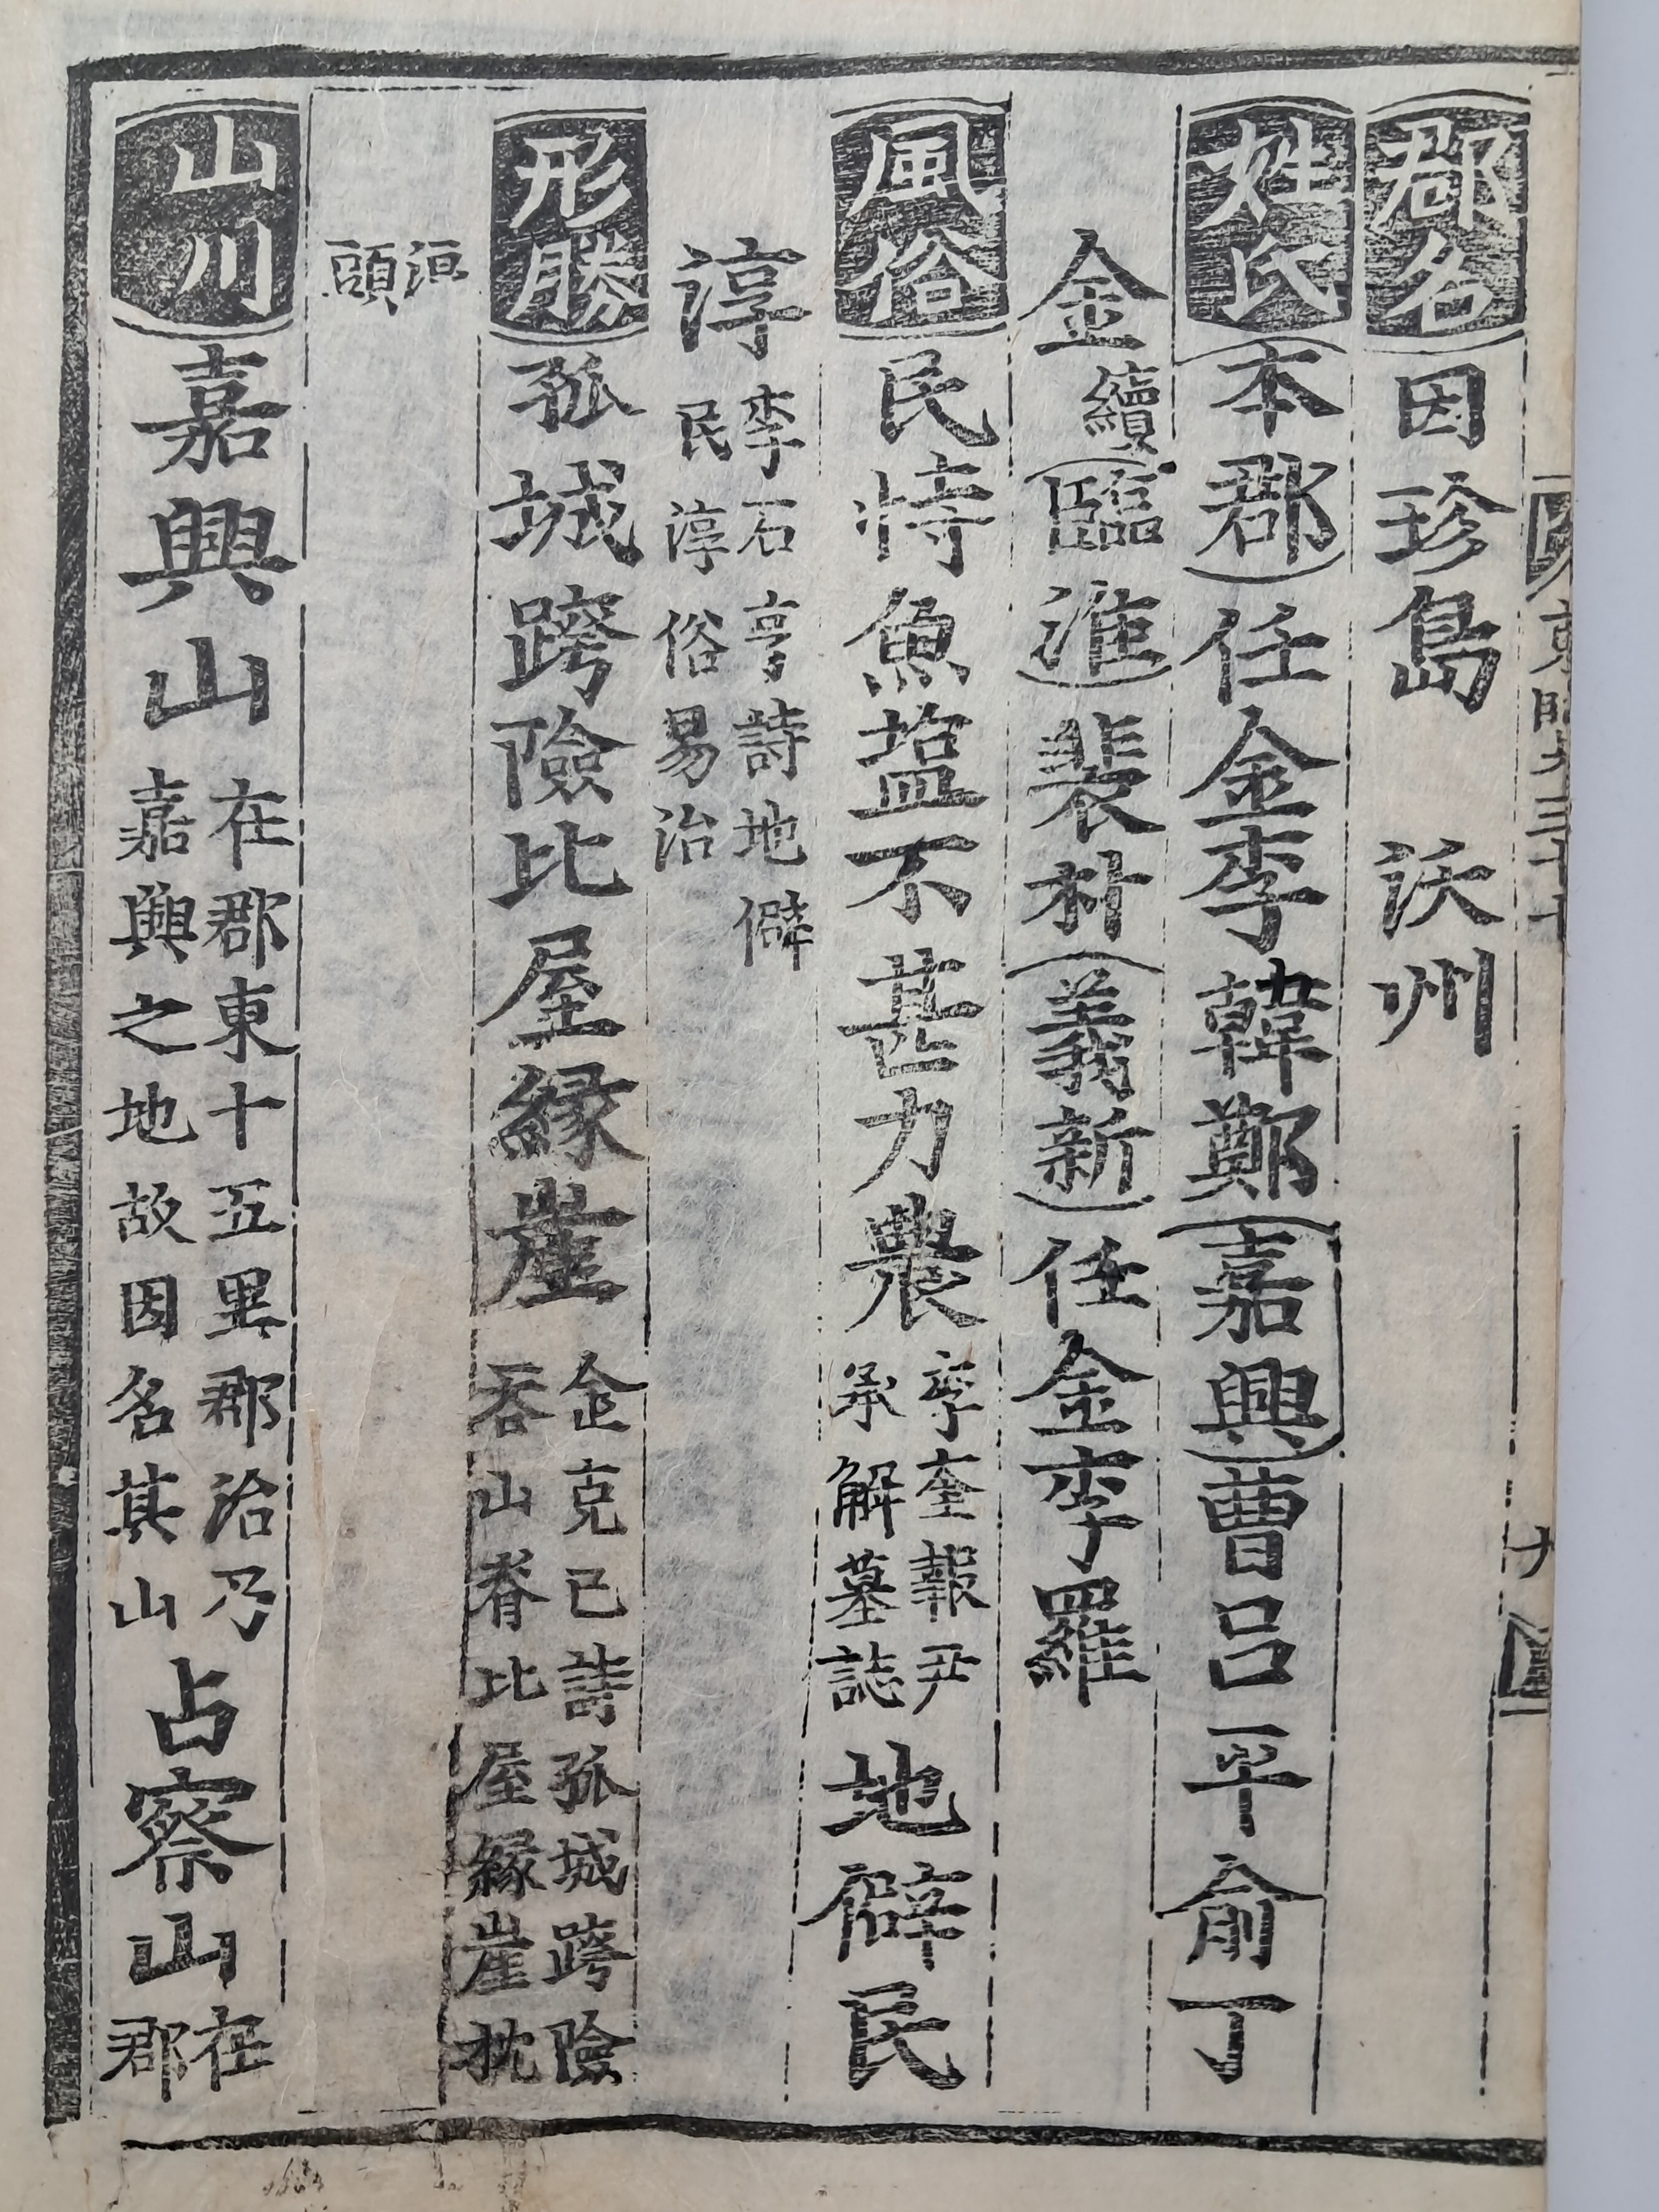 郡名因珍島 沃州
姓氏本郡任金李韓鄭嘉興曹呂平俞丁
金續臨淮裴朴義新任金李羅
風俗民恃魚塩不甚力農李奎報尹
承解墓誌地僻民
淳李石亨詩地僻
民淳俗易治
形勝孤城跨險比屋緣崖金克己詩孤城跨險
吞山脊比屋緣崖枕
海
頭
山川嘉興山在郡東十五里郡治乃
嘉興之地故因名其山占察山在
郡